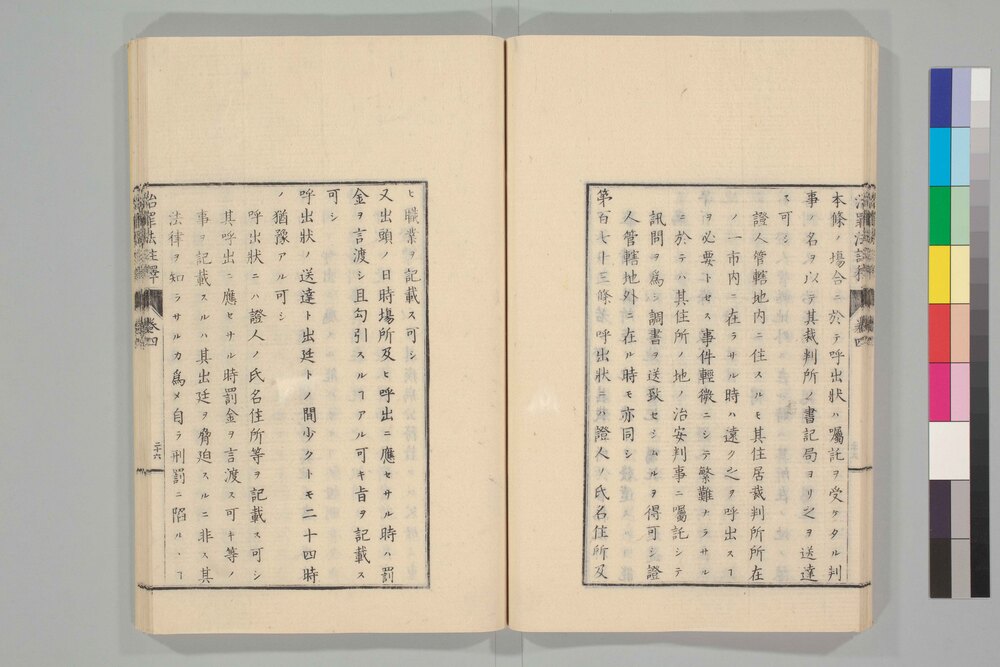 本條ノ場合ニ於テ呼出狀ハ囑託ヲ受ケタル判
事ノ名ヲ以テ其裁判所ノ書記局ヨリ之ヲ送達
ス可シ
證人管轄地内ニ住スルモ其住居裁判所所在
ノ一市内ニ在ラサル時ハ遠ク之ヲ呼出スヿ
ヲ必要トセス事件輕微ニシテ繁難ナラサル
ニ於テハ其住所ノ地ノ治安判事ニ囑託シテ
訊問ヲ爲シ調書ヲ送致セシムルヲ得可シ證
人管轄地外ニ在ル時モ亦同シ
第百七十三條 呼出狀ニハ證人ノ氏名住所及
治罪法註釋 卷四 二十六
ヒ職業ヲ記載ス可シ
又出頭ノ日時場所及ヒ呼出ニ應セサル時ハ罰
金ヲ言渡シ且勾引スルヿアル可キ旨ヲ記載ス
可シ
呼出狀ノ送達ト出廷トノ間少クトモ二十四時
ノ猶豫アル可シ
呼出狀ニハ證人ノ氏名住所等ヲ記載ス可シ
其呼出ニ應セサル時罰金ヲ言渡ス可キ等ノ
事ヲ記載スルハ其出廷ヲ脅迫スルニ非ス其
法律ヲ知ラサルカ爲メ自ラ刑罰ニ陷ルヽヿ